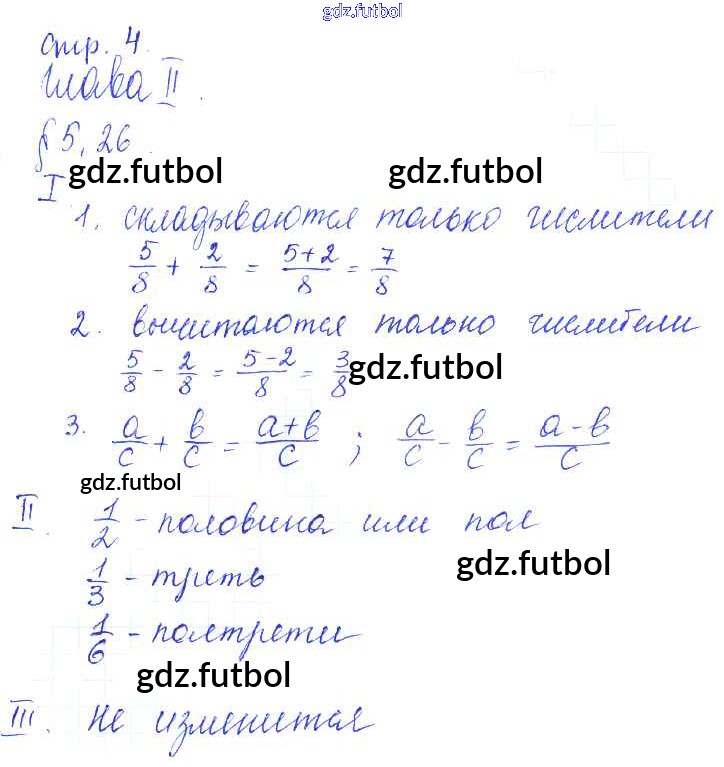 gdz.futbol
стр. 4.
Глава II.
§ 5, 26
gdz.futbol gdz.futbol
I
1. складываются только числители
5/8 + 2/8 = 5+2/8 = 7/8
2. вычитаются только числители
5/8 - 2/8 = 5-2/8 = 3/8 gdz.futbol
3. a/c + b/c = a+b/c ; a/c - b/c = a-b/c
gdz.futbol
II. 1/2 - половина или пол
gdz.futbol
1/3 - треть
1/6 - полтрети
gdz.futbol
III. Не изменится